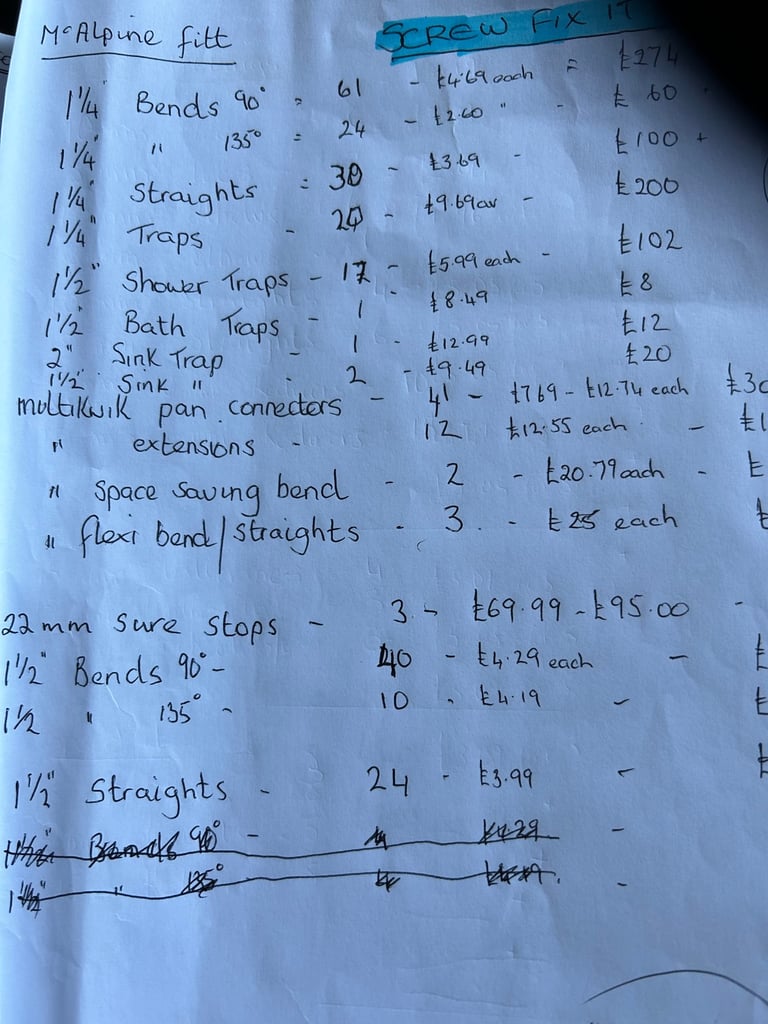 McAlpine fitt SCREW FIX IT
1 1/4" Bends 90° = 61 - £4.69 each = £274
1 1/4" " 135° = 24 - £2.60 " - £60
1 1/4" Straights = 30 - £3.69 - £100 +
1 1/4" Traps - 20 - £9.69 av - £200
1 1/2" Shower Traps - 17 - £5.99 each - £102
1 1/2" Bath Traps - 1 - £8.49 £8
2" Sink Trap - 1 - £12.99 £12
1 1/2" Sink " - 2 - £9.49 £20
multikwik pan connectors - 41 - £7.69 - £12.74 each £30
" extensions - 12 £12.55 each - £1
" space saving bend - 2 - £20.79 each - £
" flexi bend/straights - 3 - £25 each £
22mm sure stops - 3 - £69.99 - £95.00 -
1 1/2" Bends 90° - 40 - £4.29 each - £
1 1/2 " 135° - 10 - £4.19 - £
1 1/2" Straights - 24 - £3.99 - £
90° - £4.29 -
1 " 135° -